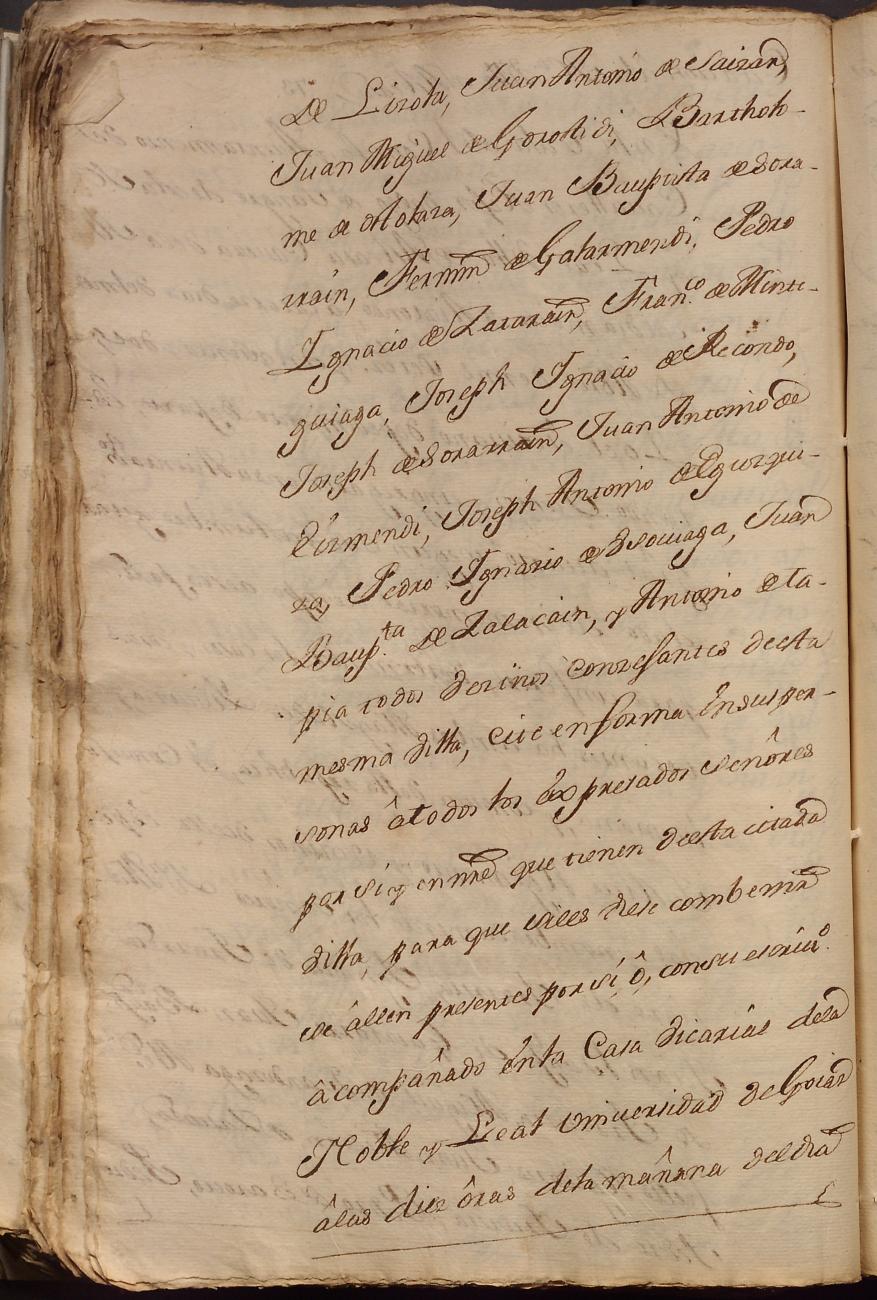 de Lizola, Juan Antonio de Saizar,
Juan Miguel de Gorostidi, Bartholo-
me de Olokaza, Juan Bauptista de Sora-
rrain, Fermin de Galarmendi, Pedro
Ygnacio de Zatarain, Fran.co de Minte-
guiaga, Joseph Ygnacio de Recondo,
Joseph de Sorarrain, Juan Antonio de
Eizmendi, Joseph Antonio de Eguzqui-
za, Pedro Ygnacio de Ysoviaga, Juan
Baup.ta de Zalacain, y Antonio de ta-
pia todos vezinos conzesantes de esta
mesma Villa, cite en forma en sus per-
sonas â todos los expresados señores
por si, y en nre que tienen de esta citada
Villa, para que siles viese combenir
se âllen presentes por si, ô, con su escriv.o
âcompañado en la Casa Vicarial de la
Noble y Leal Universidad de Goiaz
âlas diez ôras de la mañana del dia